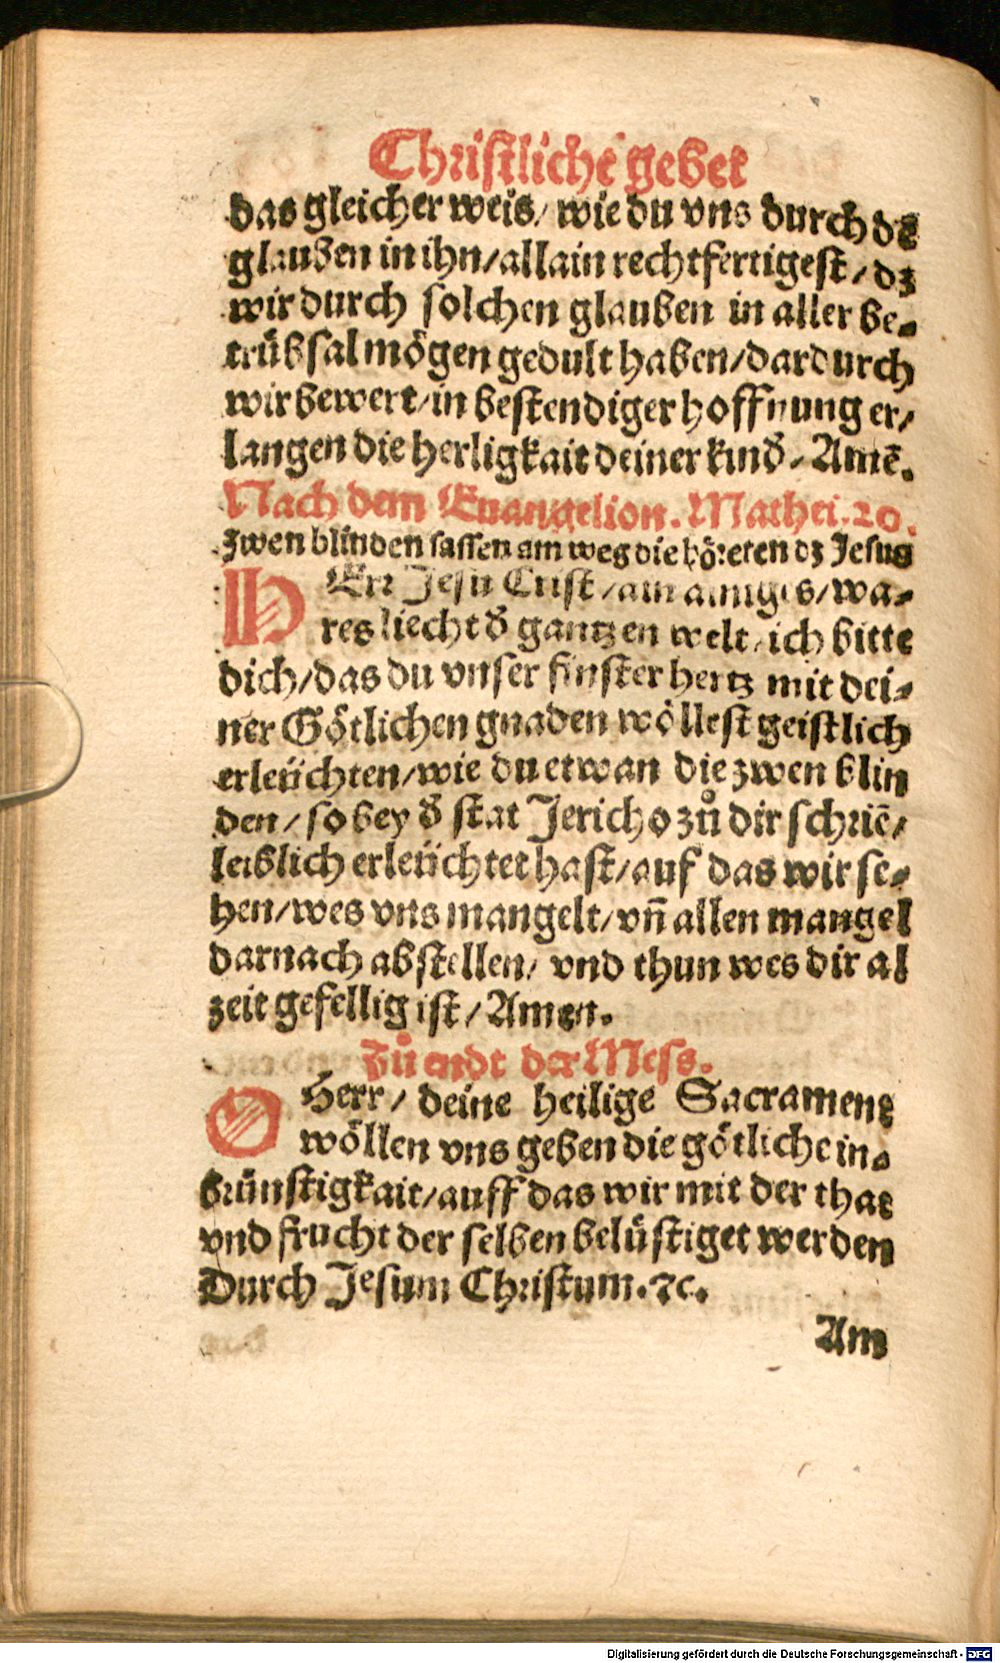 Christliche gebet
das gleicher weis / wie du vns durch dē
glauben in ihn / allain rechtfertigest / dz
wir durch solchen glauben in aller be-
trübsal mögen gedult haben / dardurch
wir bewert / in bestendiger hoffnung er-
langen die herligkait deiner kind̕ / Amē.
Nach dem Euangelion. Mathei. 20.
Zwen blinden sassen am weg die höreten dz Jesus
HErr Jesu Crist / ain ainiges / wa-
res liecht d̕ gantzen welt / ich bitte
dich / das du vnser finster hertz mit dei-
ner Götlichen gnaden wöllest geistlich
erleüchten / wie du etwan die zwen blin
den / so bey d̕ stat Jericho zů dir schriē /
leiblich erleüchtet hast / auf das wir se-
hen / wes vns mangelt / vñ allen mangel
darnach abstellen / vnd thun wes dir al
zeit gefellig ist / Amen.
Zů endt der Mess.
O Herr / deine heilige Sacrament
wöllen vns geben die götliche in-
brünstigkait / auff das wir mit der that
vnd frucht der selben belüstiget werden
Durch Jesum Christum. ꝛc.
Am
Digitalisierung gefördert durch die Deutsche Forschungsgemeinschaft - DFG